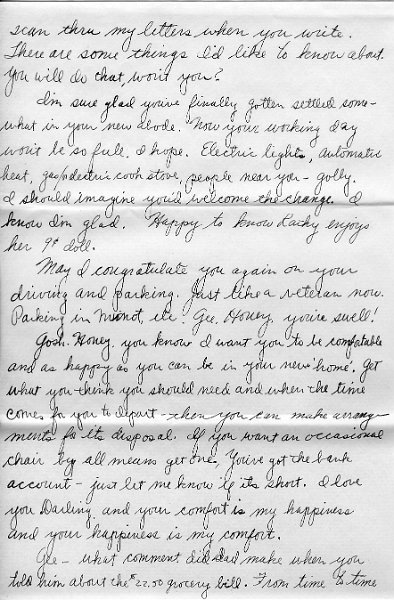 scan thru my letters when you write.
There are some things I'd like to know about.
You will do that, won't you?
I'm sure glad you've finally gotten settled some-
what in your new abode. Now your working day
won't be so full, I hope. Electric lights, automatic
heat, gas/electric cook stove, people near you - golly.
I should imagine you'd welcome the change. I
know I'm glad. Happy to know Kathy enjoys
her doll.
May I congratulate you again on your
driving and parking. Just like a veteran now.
Parking in Minot, etc. Gee, Honey, you're swell!
Gosh, Honey, you know I want you to be comfortable
and as happy as you can be in your new 'home'. Get
what you think you should need and when the time
comes for you to depart - then you can make arrange-
ments for its disposal. If you want an occasional
chair by all means get one. You've got the bank
account - just let me know if it's short. I love
you Darling and your comfort is my happiness
and your happiness is my comfort.
Gee - what comment did dad make when you
told him about the $22.00 grocery bill. From time to time